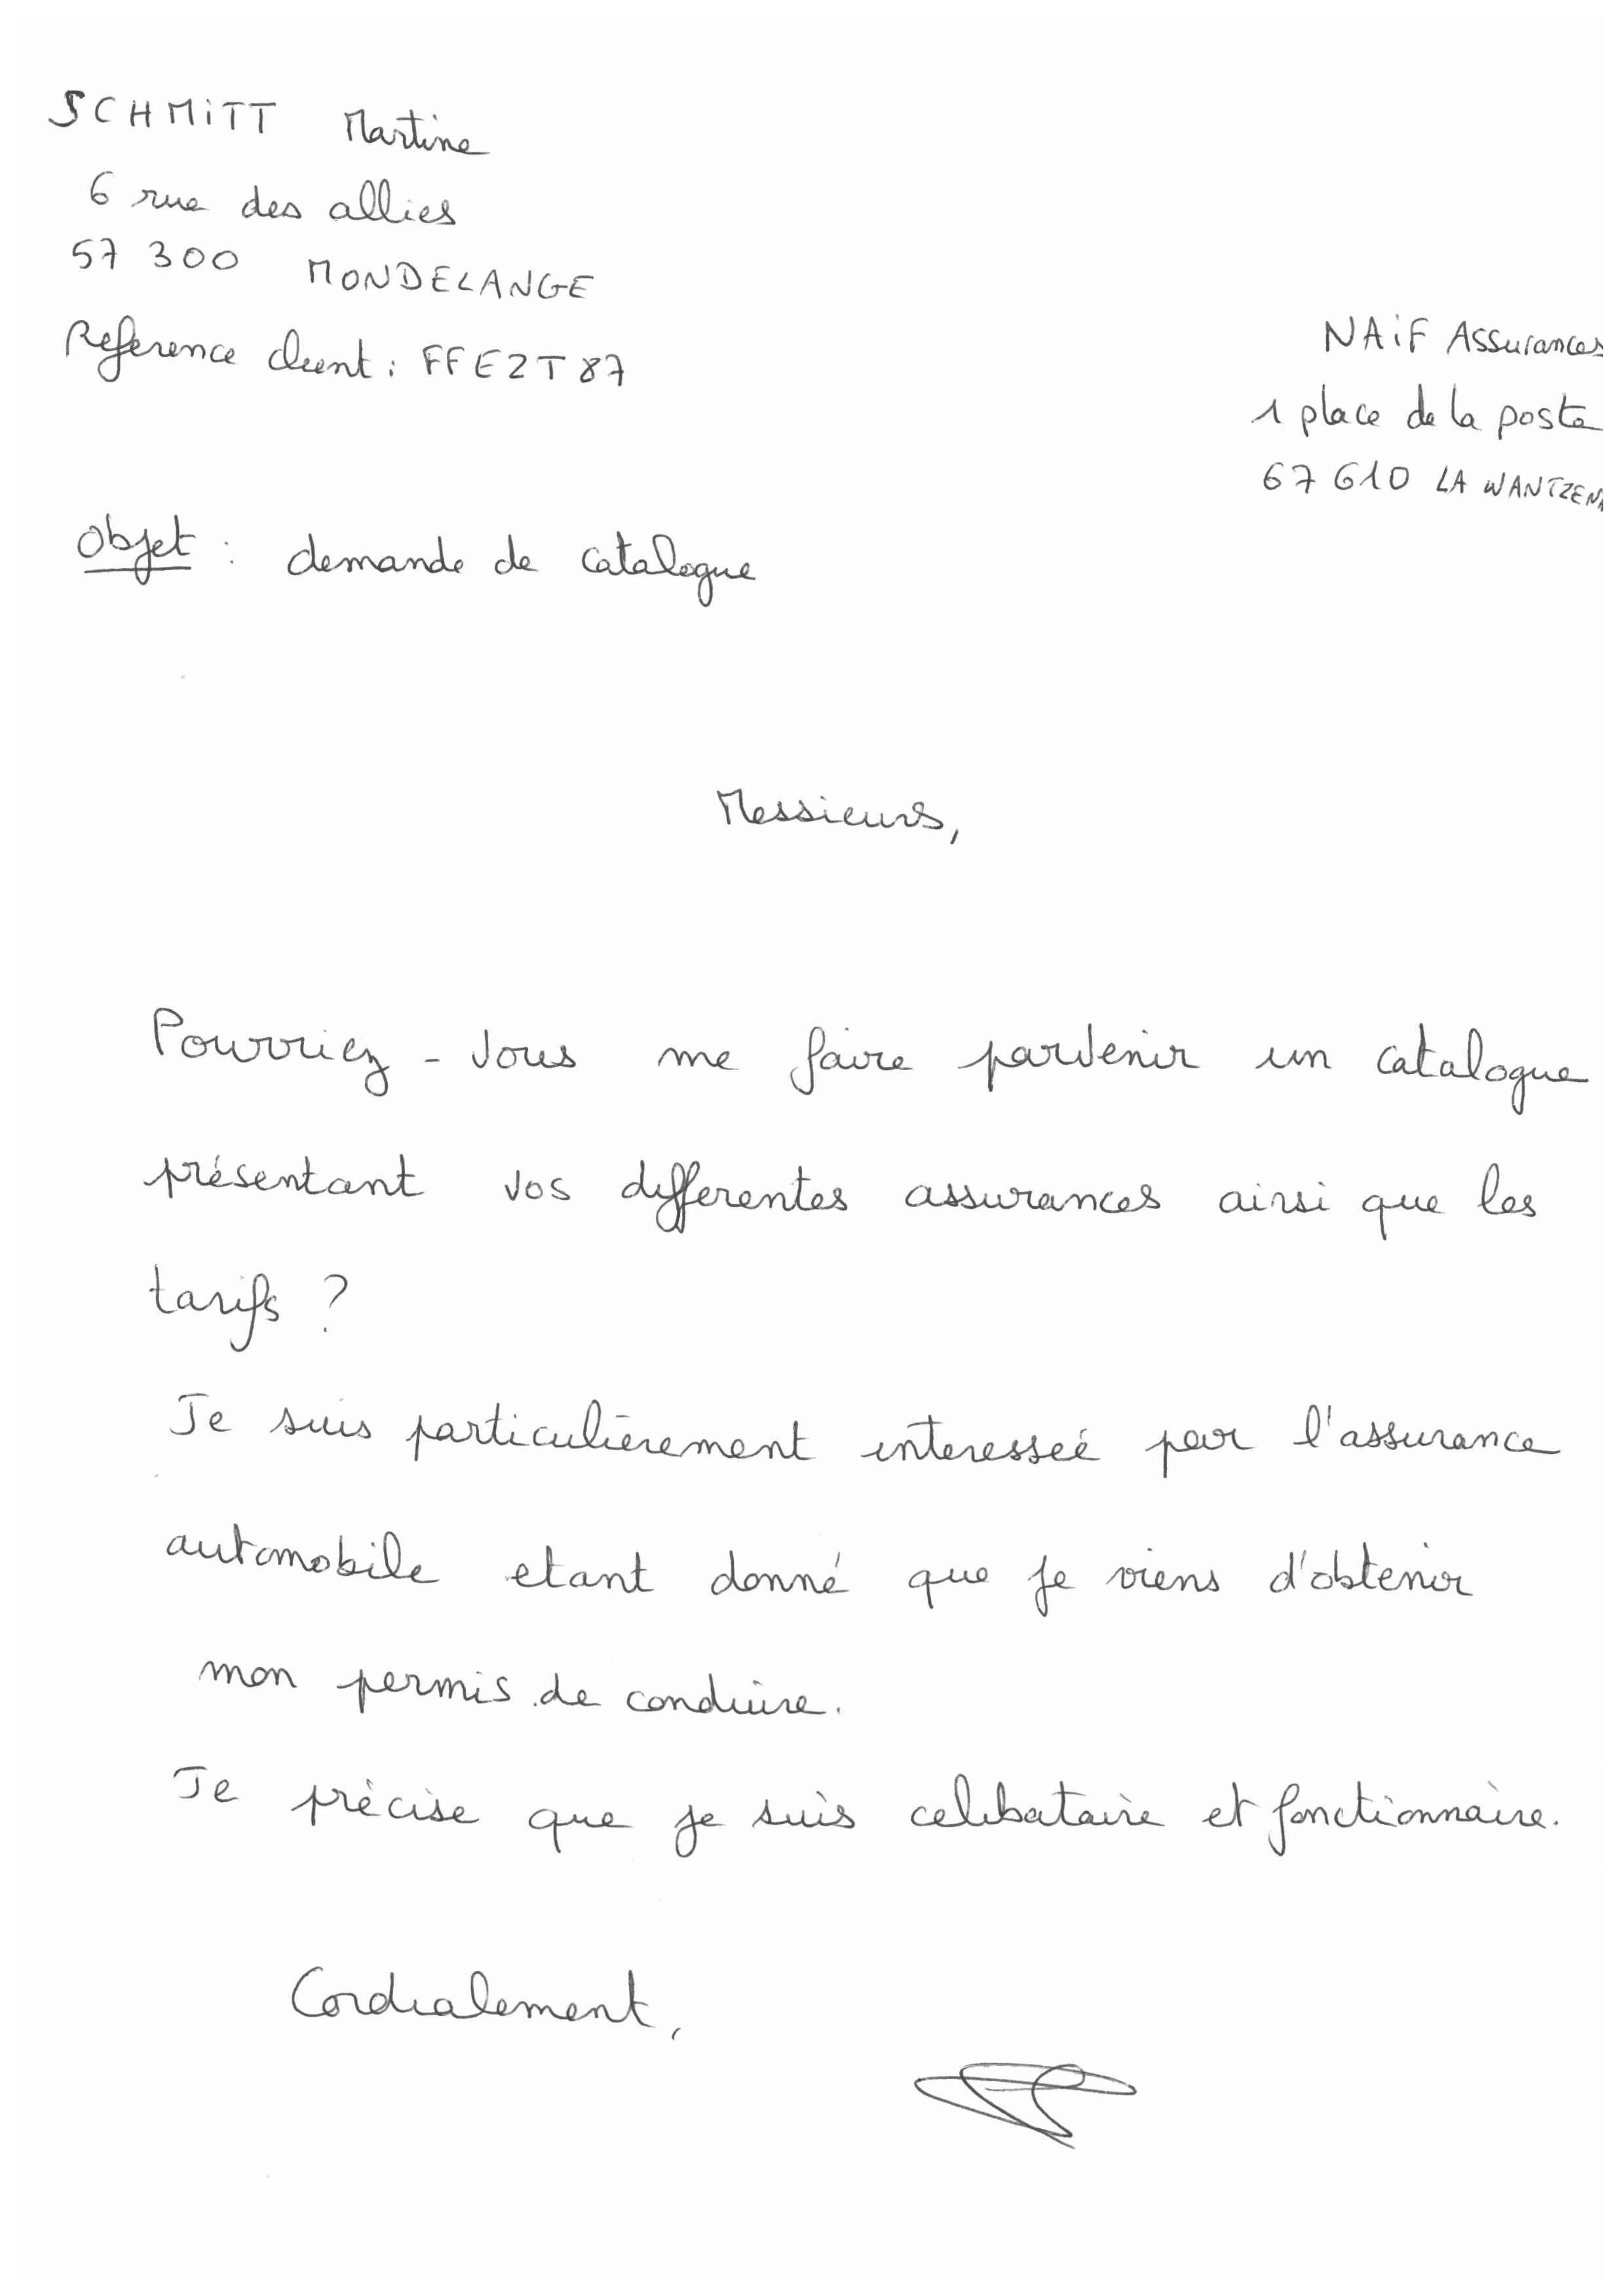 SCHMITT Martine
6 rue des allies
57 300 MONDELANGE
Reference client : FFEZT87
NAIF Assurances
1 place de la poste
67 610 LA WANTZEN
Objet : demande de catalogue
Messieurs,
Pourriez-vous me faire parvenir un catalogue
présentant vos differentes assurances ainsi que les
tarifs ?
Je suis particulièrement interesseé par l'assurance
automobile etant donné que je viens d'obtenir
mon permis de conduire.
Je précise que je suis celibataire et fonctionnaire.
Cordialement,